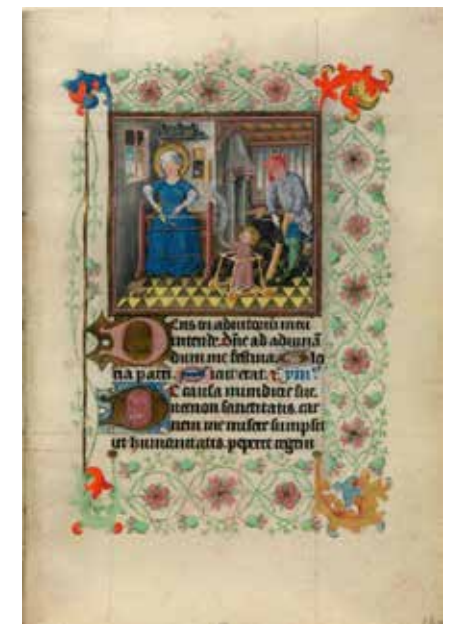 Deus in adiutoriū meū
intende. Dñe ad adiuuā
dum me festina. Glo
ria patri. sicut erat. ymn
causa mundicie
necnon sanctitatis. car
nem me misere sumpsit
ut humanitatis. peperit regem